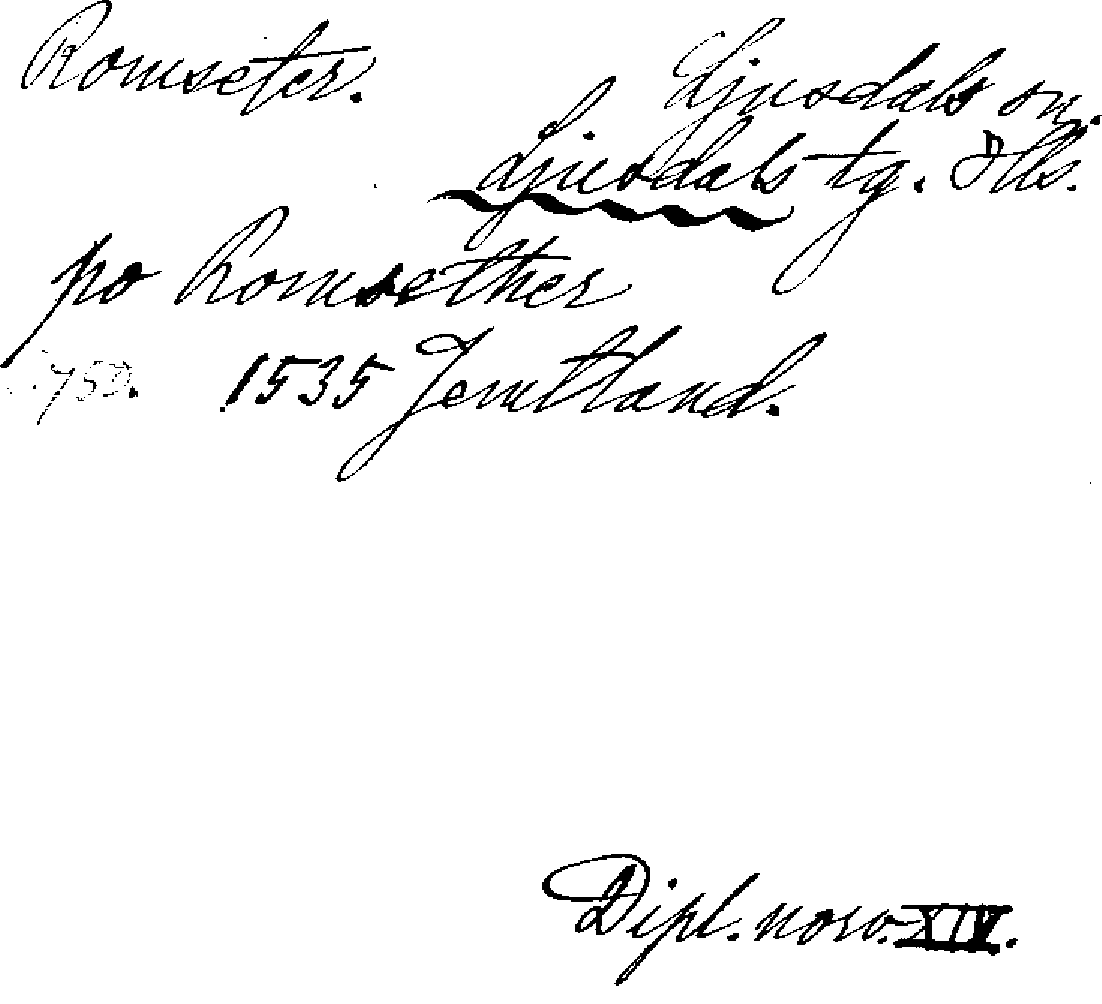 Romseter.
Ljusdals sn.
Ljusdals tg. Hls.
po Romsether
750. 1535 Jemtland.
Dipl. norv. XIV.